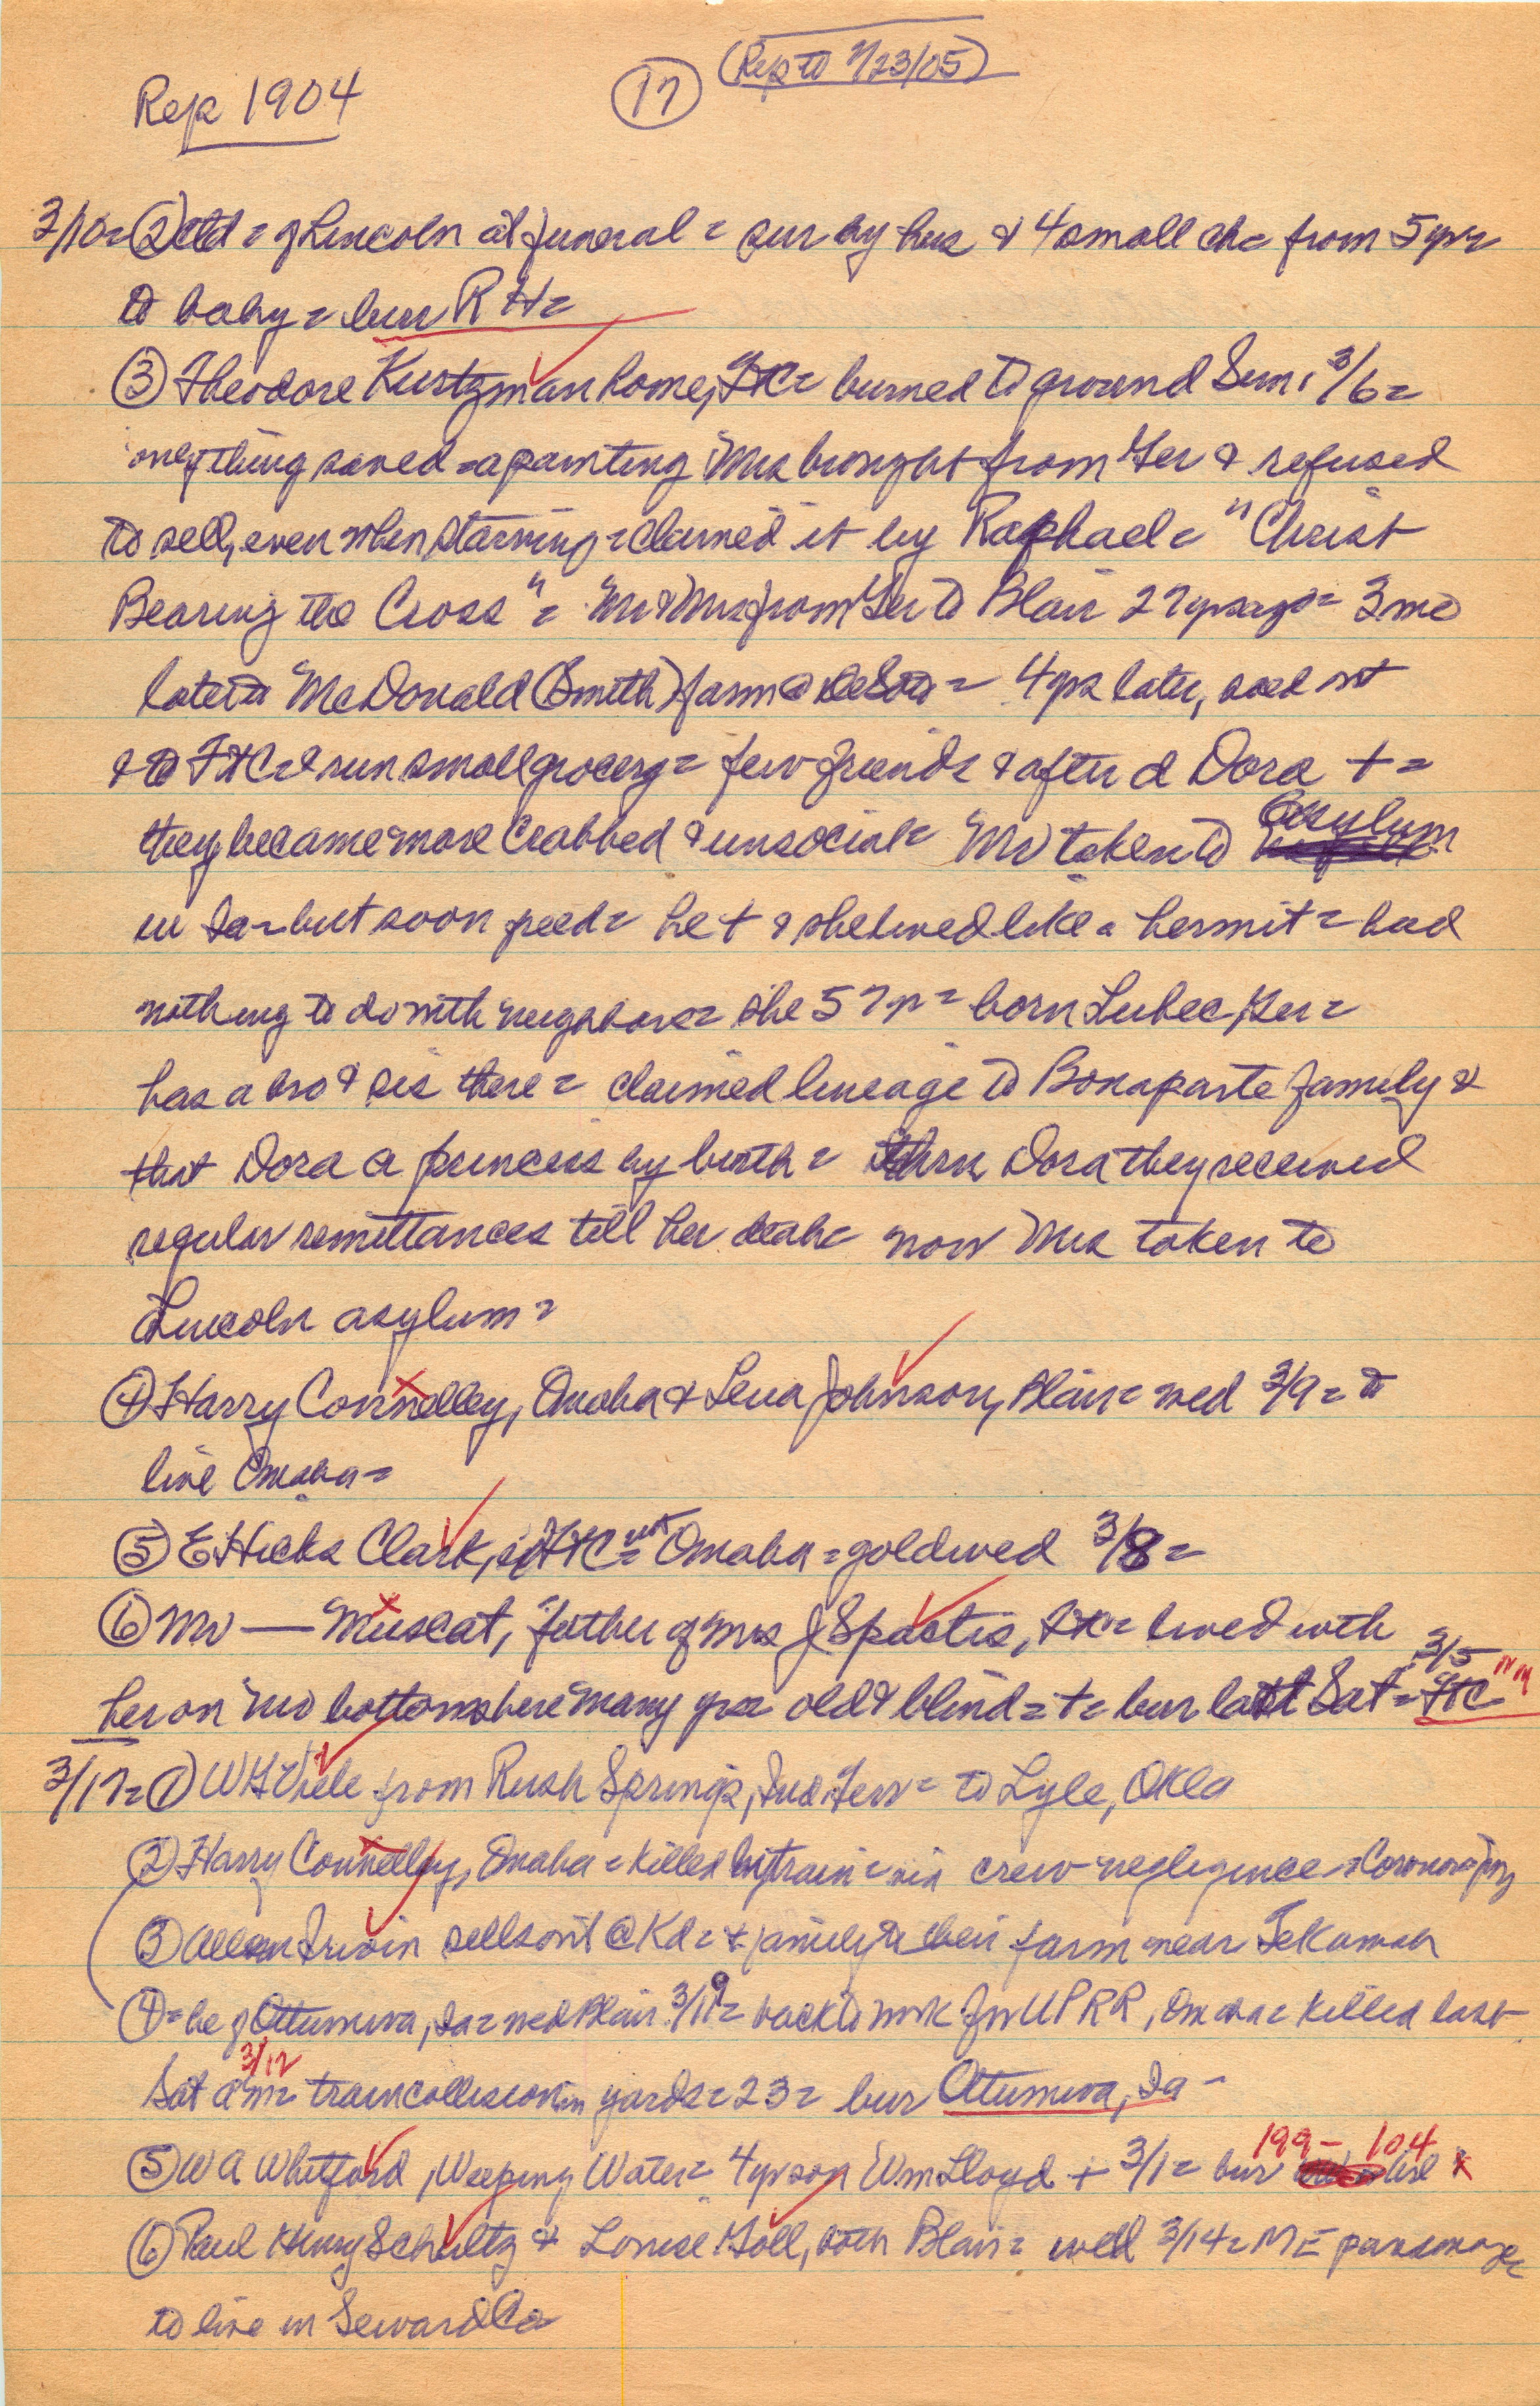 Rep 1904
(17)
(Rep to 7/23/05)
3/10= (2) ctd = of Lincoln at funeral = sur by hus & 4 small ch= from 5 yrs
to baby = bur R H=
(3) Theodore Kurtzman home, FtC= burned to ground Sun, 3/6=
only thing saved = a painting Mrs brought from Ger & refused
to sell, even when starving = claimed it by Raphael = "Christ
Bearing the Cross" = Mr & Mrs from Ger to Blair 27 yrs ago = 3 mo
later to McDonald (Smith) farm @ DeSoto = 4 yrs later, sold out
& to FtC & run small grocery = few friends & after d Dora + =
they became more crabbed & unsocial = Mr taken to asylum
in Ia = but soon freed = he + & she lived like a hermit = had
nothing to do with neighbors = she 57 yr = born Lubec, Ger =
has a bro & sis there = claimed lineage to Bonaparte family &
that Dora a princess by birth = thru Dora they received
regular remittances till her death = now Mrs taken to
Lincoln asylum =
(4) Harry Connelley, Omaha & Lena Johnson, Blair = wed 3/9 = to
live Omaha =
(5) E Hicks Clark, FtC = Omaha = gold wed 3/8 =
(6) Mr — Muscat, father of Mrs J Spastis, FtC = lived with
her on Mo bottoms here many yrs = old & blind = + = bur last Sat = 3/5 FtC
3/17= (1) W G Viele from Rush Springs, Ind Terr = to Lyle, Okla
(2) Harry Connelley, Omaha = killed by train = crew negligence = Coroner's jury
(3) Allen Irwin sells out @ Kd = & family to their farm near Tekamah
(4) = he of Ottumwa, Ia = wed Blair 3/9 = back to work for UPRR, Omaha = killed last
Sat a m = 3/12 train collision in yards = 23 = bur Ottumwa, Ia -
(5) W A Whitford, Weeping Water = 4 yr son Wm Lloyd + 3/1 = bur 199 - 104
(6) Paul Henry Schultz & Louise Goll, both Blair = wed 3/14 = M E parsonage
to live in Seward Co